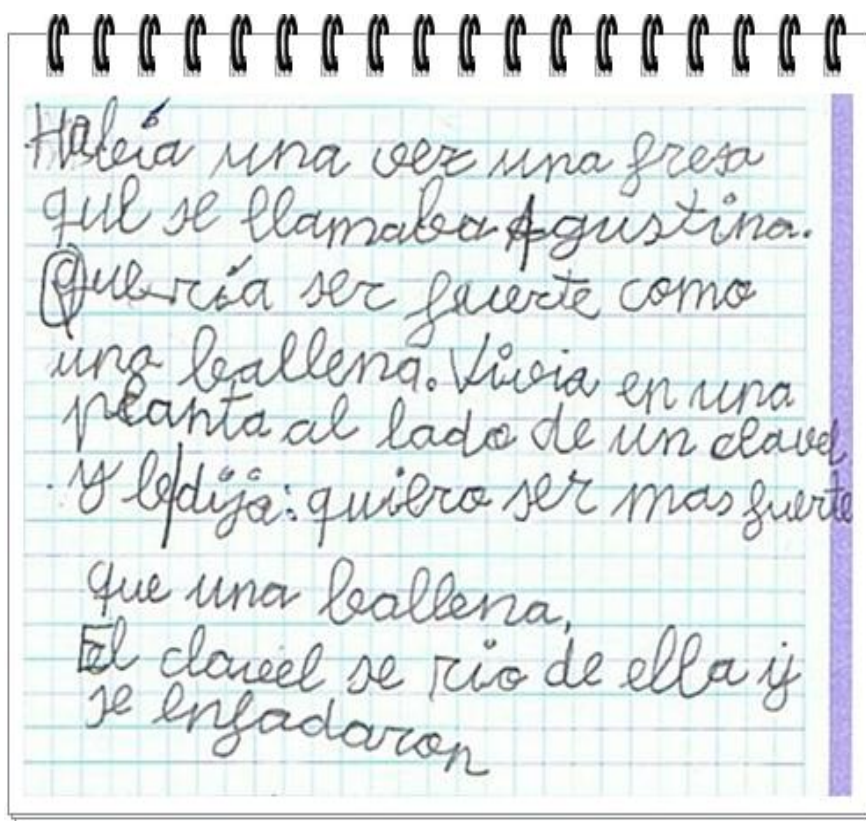 Había una vez una fresa
que se llamaba Agustina.
Quería ser fuerte como
una ballena. Vivia en una
planta al lado de un clavel
y le dijo: quiero ser mas fuerte
que una ballena,
El clavel se rio de ella y
se enfadaron